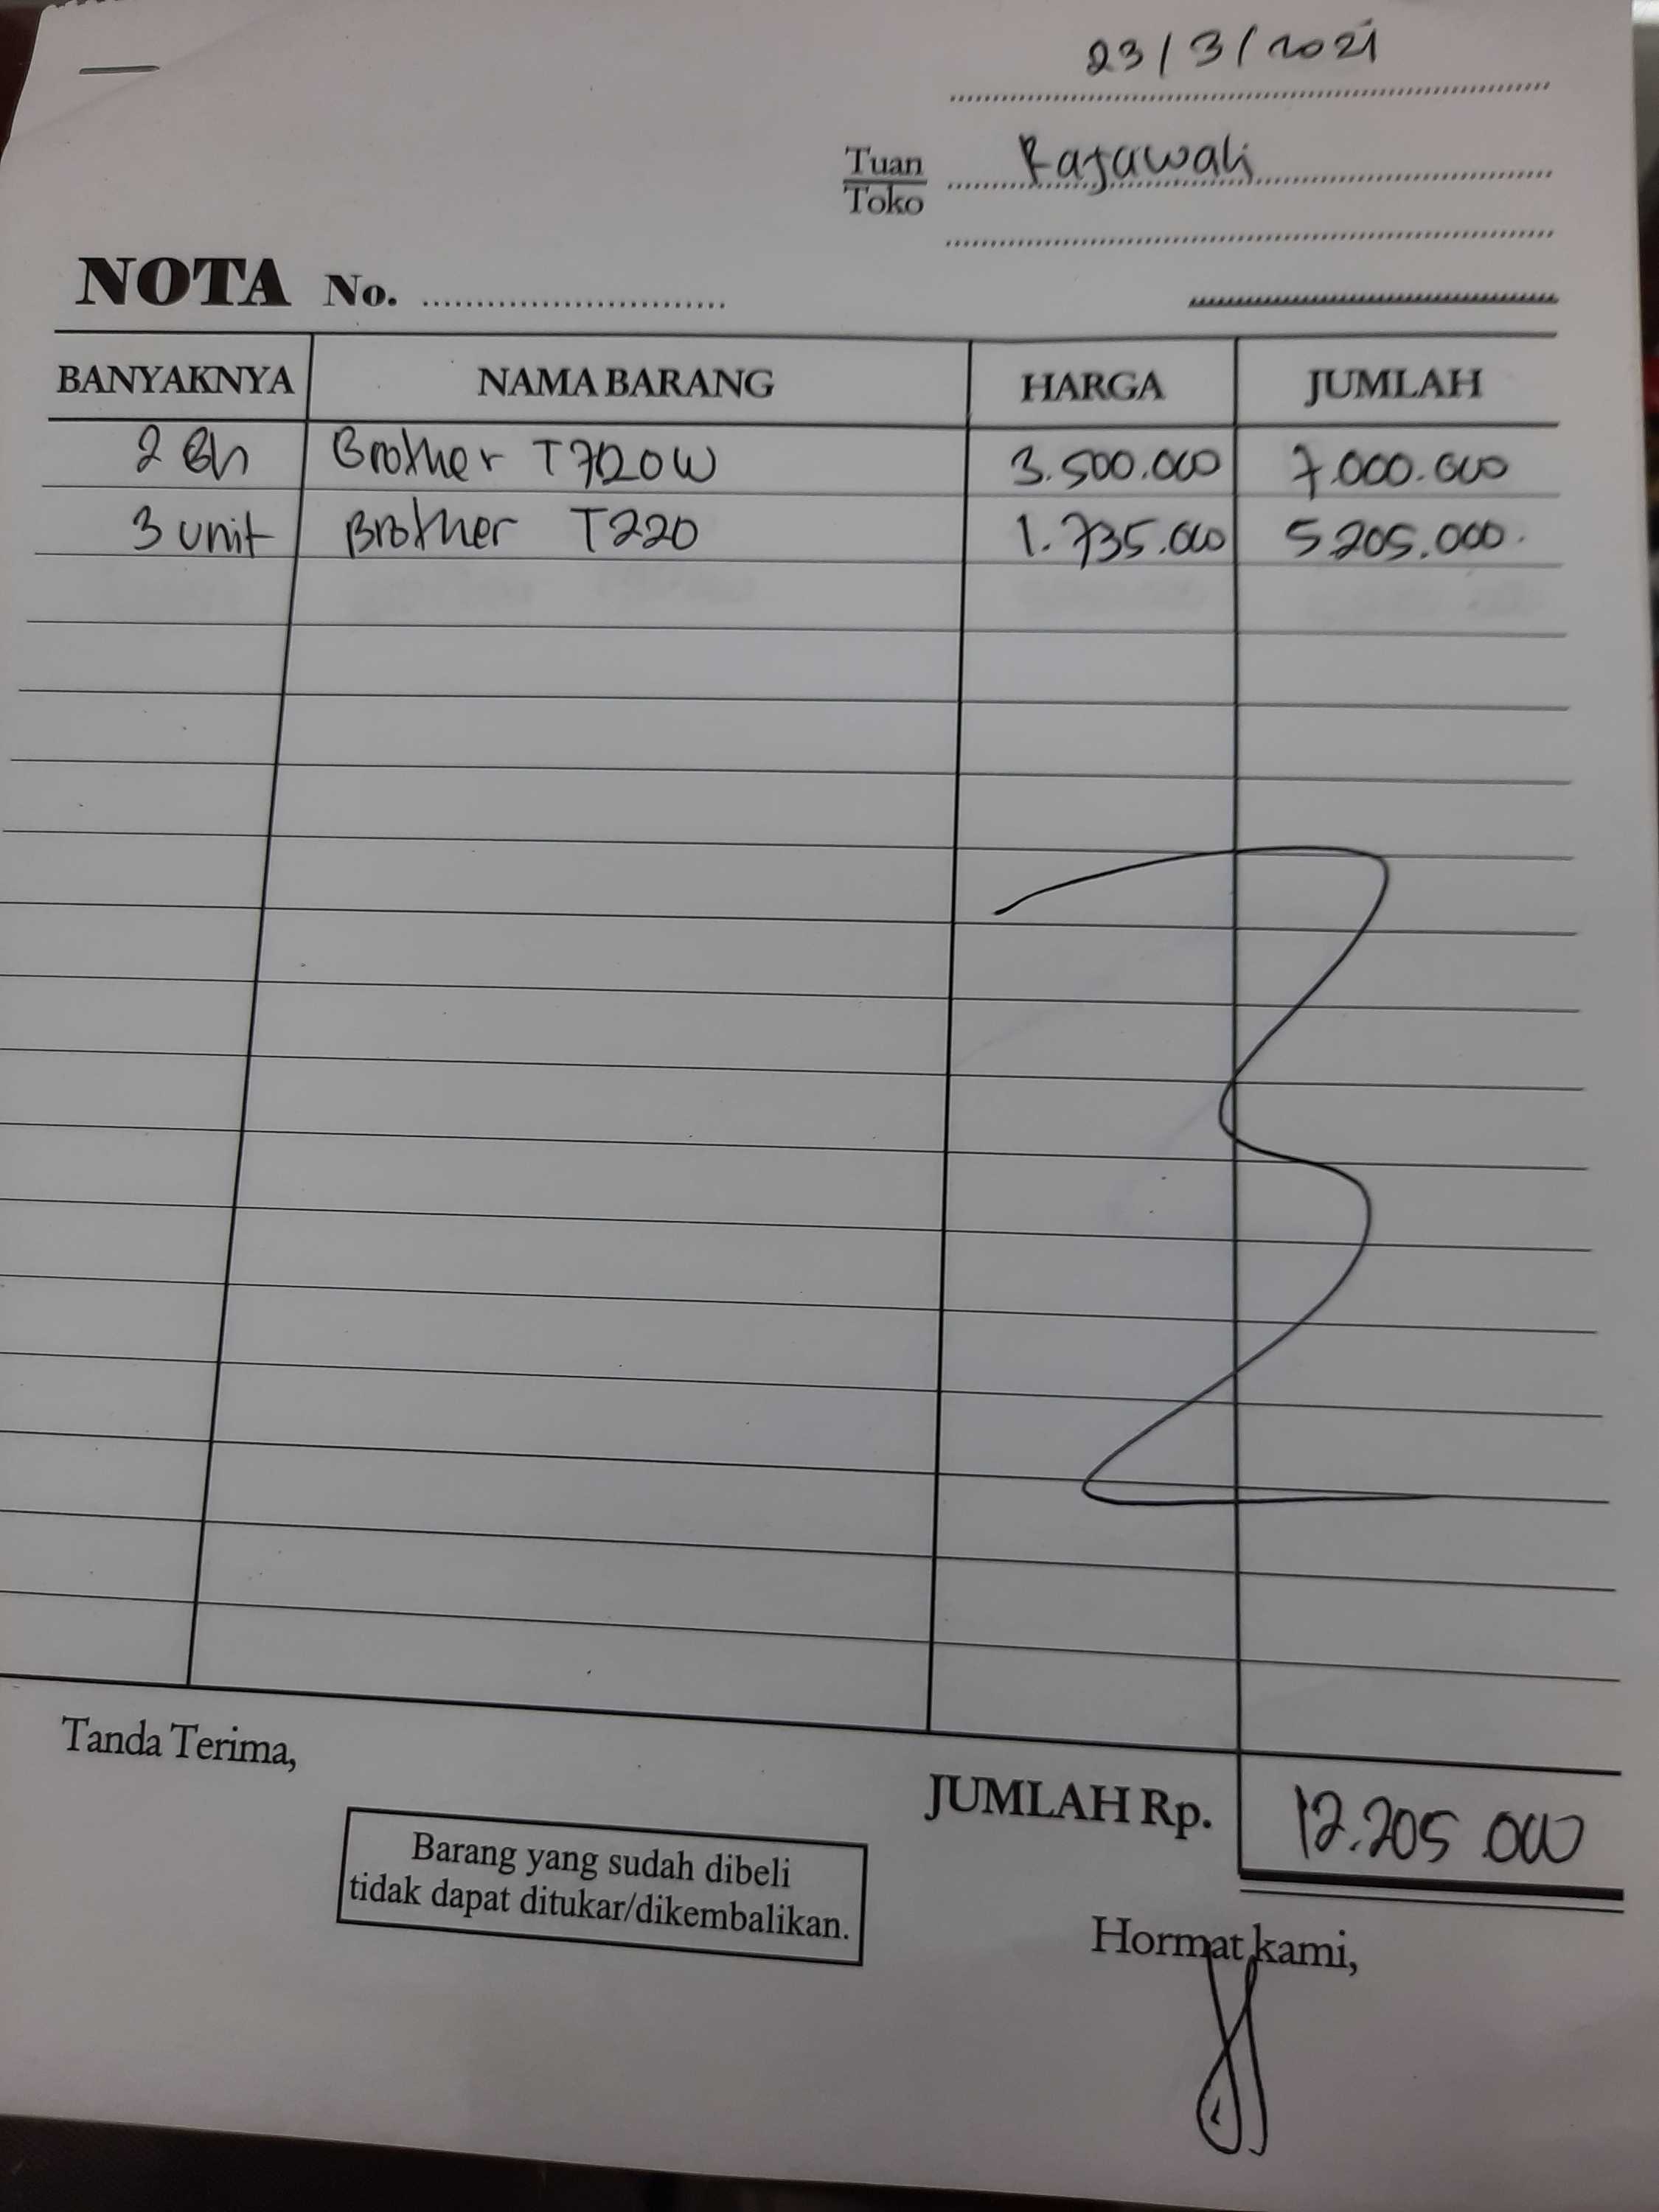 23/3/2021
Tuan
Toko
Rajawali
NOTA No.
BANYAKNYA NAMA BARANG HARGA JUMLAH
2 Bh Brother T720W 3.500.000 7.000.000
3 unit Brother T220 1.735.000 5.205.000.
Tanda Terima,
JUMLAH Rp. 12.205.000
Barang yang sudah dibeli
tidak dapat ditukar/dikembalikan.
Hormat kami,